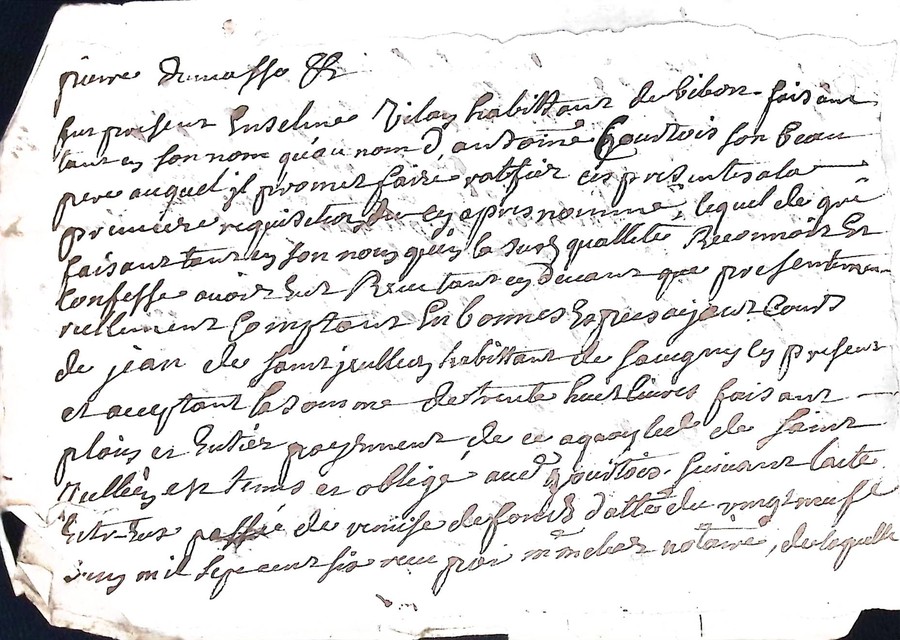 pierre dumasso &c
fut present Enselme Vilay habittant de bibon faisant
tant en son nom qu'au nom d'antoine Gourtois son beau
pere auquel il promet faire rattifier ces presentes a la
premiere requisition du cy apres nommé, lequel de gré
faisant tant en son nom qu'en la susd quallité Reconnoit Et
Confesse avoir Eut Receu tant cy devant que presentemen
reellement Comptant En bonnes Espesses ajant Cours
de jean de saint jullien habittant de savigny cy present
et acceptant la somme de trente huit livres faisant
plain et Entier payement de ce a quoy led de saint
Jullien est tenus et obligé aud Gourtois suivant l'acte
Entr Eux passé de remise de fonds d'atté du vingt neuf
mil sept cent six receu par notaire, de laquelle